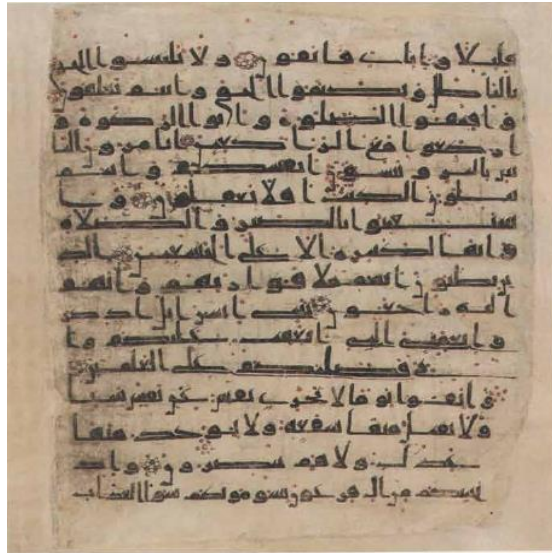 قليلا وايي فاتقون ولا تلبسوا الحق
بالبطل وتكتموا الحق وانتم تعلمون
واقيموا الصلوة واتوا الزكوة و
اركعوا مع الركعين اتامرون النا
س بالبر وتنسون انفسكم وانتم
تتلون الكتب افلا تعقلون وا
ستعينوا بالصبر والصلاة
وانها لكبيرة الا على الخشعين الذ
ين يظنون انهم ملقوا ربهم وانهم
اليه رجعون يبني اسرايل اذكر
وا نعمتي التي انعمت عليكم وا
ني فضلتكم على العلمين
واتقوا يوما لا تجزي نفس عن نفس شيا
ولا يقبل منها شفعة ولا يوخذ منها
عدل ولا هم ينصرون واذ
نجينكم من ال فرعون يسومونكم سوا العذاب